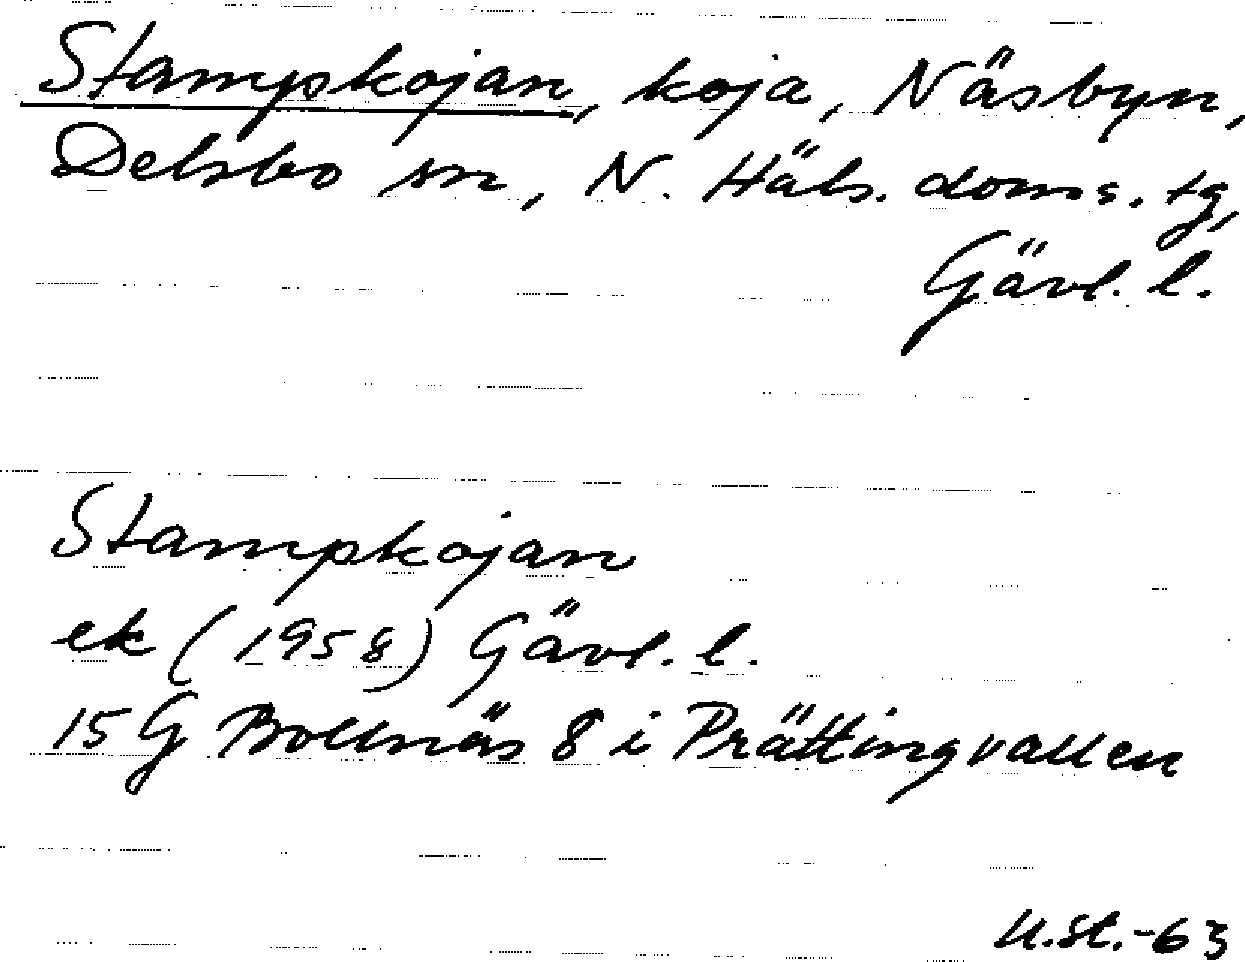 Stampkojan, koja, Näsbyn,
Delsbo sn, N. Häls. doms. tg,
Gävl. l.
Stampkojan
ek (1958) Gävl. l.
15 G Bollnäs 8 i Prättingvallen
U.St.-63